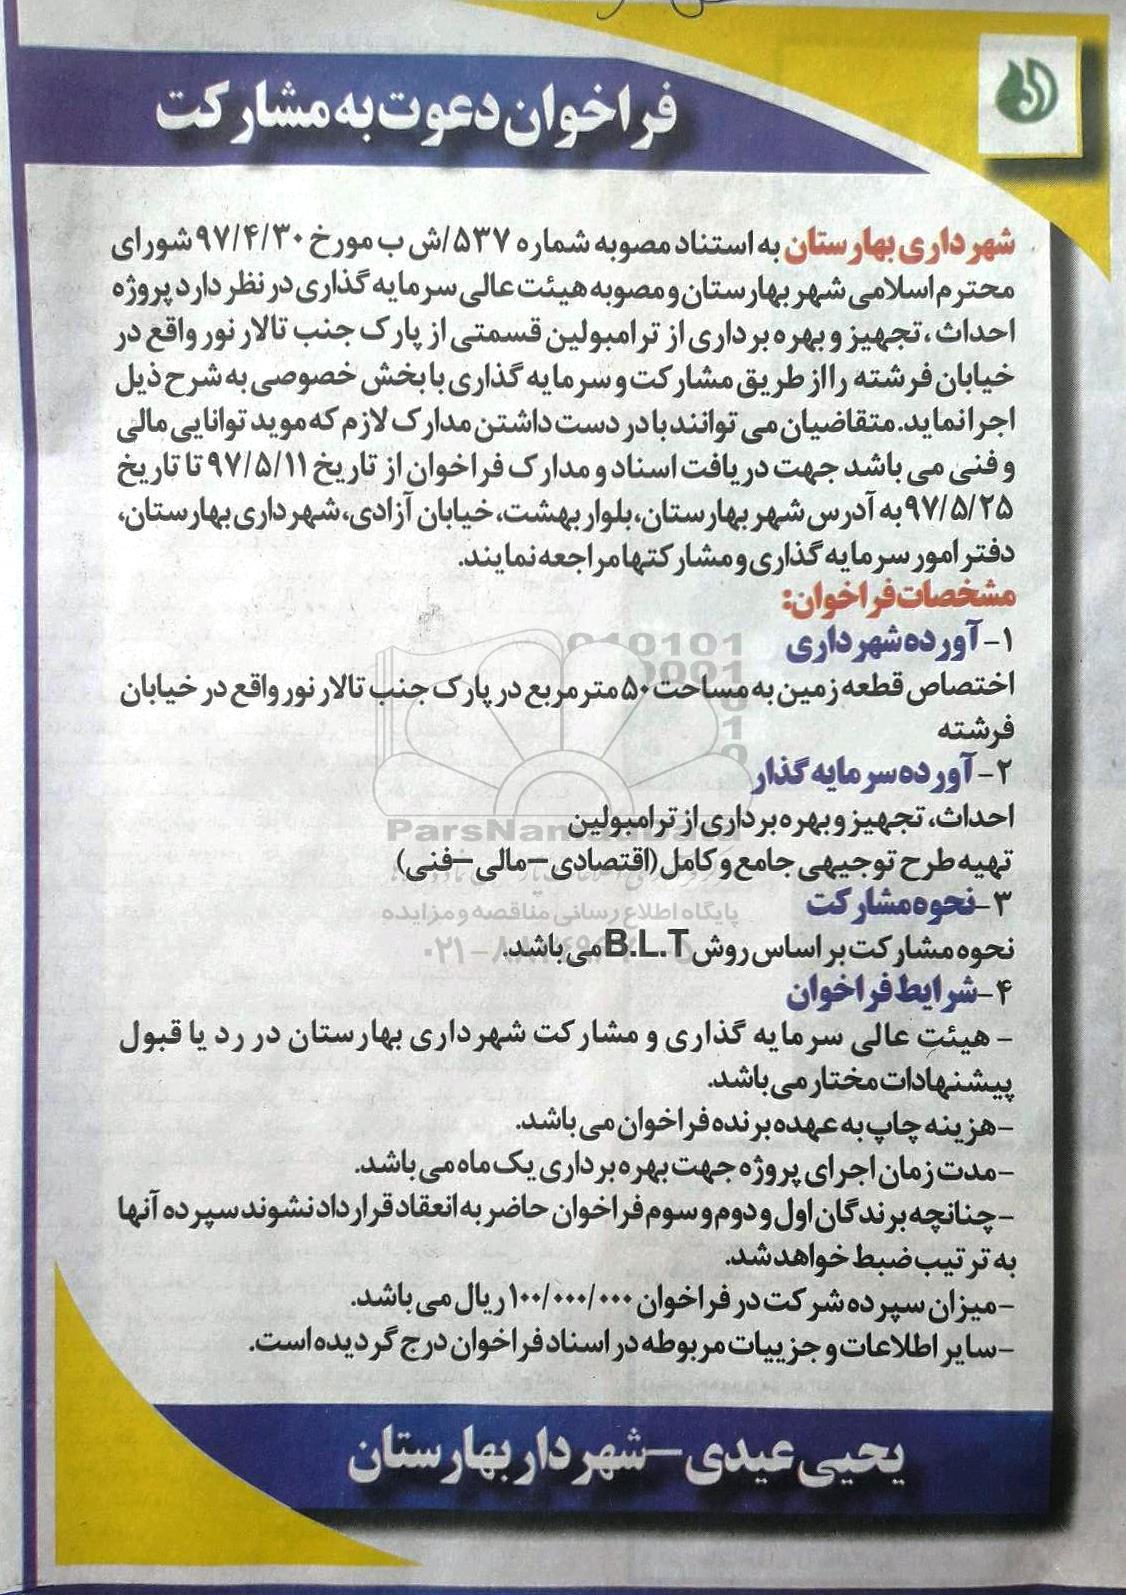 فراخوان دعوت به مشارکت
شهرداری بهارستان به استناد مصوبه شماره ۵۳۷/ش ب مورخ ۹۷/۴/۳۰ شورای
محترم اسلامی شهر بهارستان و مصوبه هیئت عالی سرمایه گذاری در نظر دارد پروژه
احداث، تجهیز و بهره برداری از ترامبولین قسمتی از پارک جنب تالار نور واقع در
خیابان فرشته را از طریق مشارکت و سرمایه گذاری با بخش خصوصی به شرح ذیل
اجرا نماید. متقاضیان می توانند با در دست داشتن مدارک لازم که موید توانایی مالی
و فنی می باشد جهت دریافت اسناد و مدارک فراخوان از تاریخ ۹۷/۵/۱۱ تا تاریخ
۹۷/۵/۲۵ به آدرس شهر بهارستان، بلوار بهشت، خیابان آزادی، شهرداری بهارستان،
دفتر امور سرمایه گذاری و مشارکتها مراجعه نمایند.
مشخصات فراخوان:
۱- آورده شهرداری
اختصاص قطعه زمین به مساحت ۵۰ متر مربع در پارک جنب تالار نور واقع در خیابان
فرشته
۲- آورده سرمایه گذار
احداث، تجهیز و بهره برداری از ترامبولین
تهیه طرح توجیهی جامع و کامل (اقتصادی – مالی – فنی)
۳- نحوه مشارکت
نحوه مشارکت بر اساس روش B.L.T می باشد.
۴- شرایط فراخوان
- هیئت عالی سرمایه گذاری و مشارکت شهرداری بهارستان در رد یا قبول
پیشنهادات مختار می باشد.
- هزینه چاپ به عهده برنده فراخوان می باشد.
- مدت زمان اجرای پروژه جهت بهره برداری یک ماه می باشد.
- چنانچه برندگان اول و دوم و سوم فراخوان حاضر به انعقاد قرارداد نشوند سپرده آنها
به ترتیب ضبط خواهد شد.
- میزان سپرده شرکت در فراخوان ۱۰۰/۰۰۰/۰۰۰ ریال می باشد.
- سایر اطلاعات و جزییات مربوطه در اسناد فراخوان درج گردیده است.
یحیی عیدی – شهردار بهارستان
پایگاه اطلاع رسانی مناقصه و مزایده